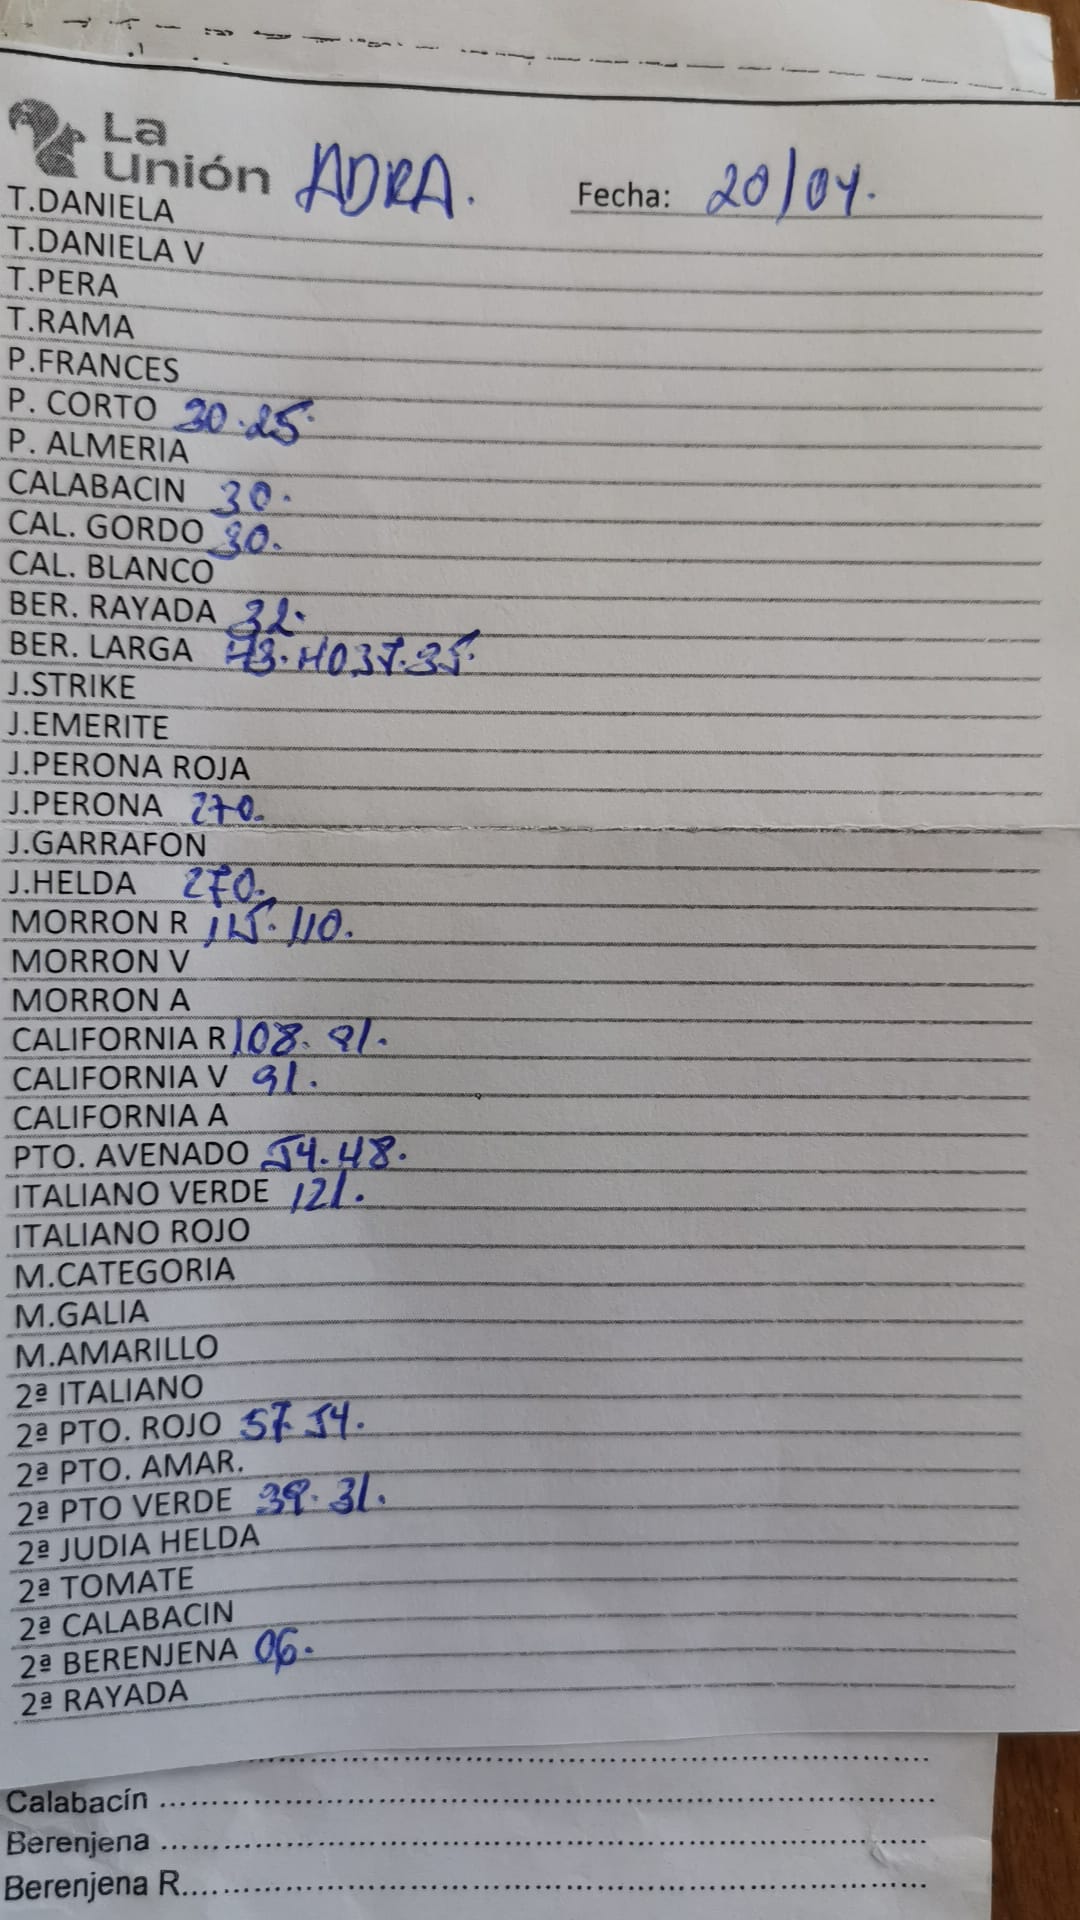 La
Unión ADRA. Fecha: 20/04.
T.DANIELA
T.DANIELA V
T.PERA
T.RAMA
P.FRANCES
P. CORTO 30.25.
P. ALMERIA
CALABACIN 30.
CAL. GORDO 30.
CAL. BLANCO
BER. RAYADA 32.
BER. LARGA 43.40 37.35.
J.STRIKE
J.EMERITE
J.PERONA ROJA
J.PERONA 270.
J.GARRAFON
J.HELDA 270.
MORRON R 115.110.
MORRON V
MORRON A
CALIFORNIA R 108. 91.
CALIFORNIA V 91.
CALIFORNIA A
PTO. AVENADO 54.48.
ITALIANO VERDE 121.
ITALIANO ROJO
M.CATEGORIA
M.GALIA
M.AMARILLO
2ª ITALIANO
2ª PTO. ROJO 57.54.
2ª PTO. AMAR.
2ª PTO VERDE 39.31.
2ª JUDIA HELDA
2ª TOMATE
2ª CALABACIN
2ª BERENJENA 06.
2ª RAYADA
Calabacín ..........
Berenjena ..........
Berenjena R..........